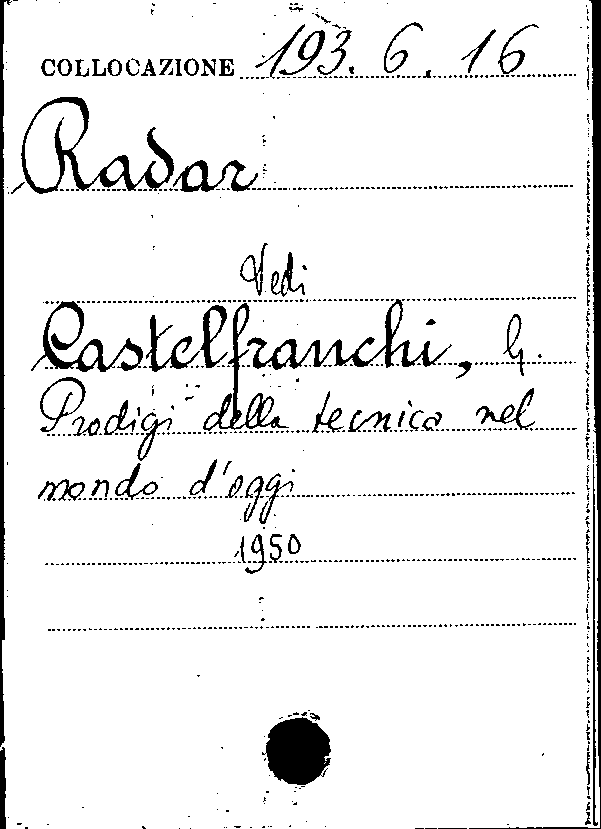 COLLOCAZIONE 193. 6. 16
Radar
Vedi
Castelfranchi, G.
Prodigi della tecnica nel
mondo d'oggi
1950